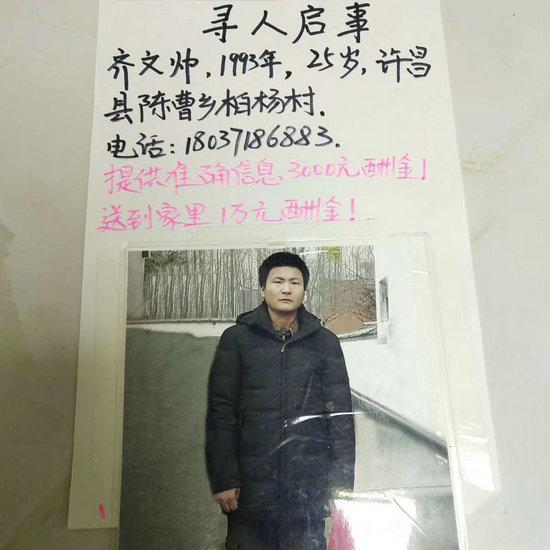 寻人启事
齐文帅,1993年,25岁,许昌
县陈曹乡柏杨村.
电话:18037186883.
提供准确信息、3000元酬金!
送到家里1万元酬金!